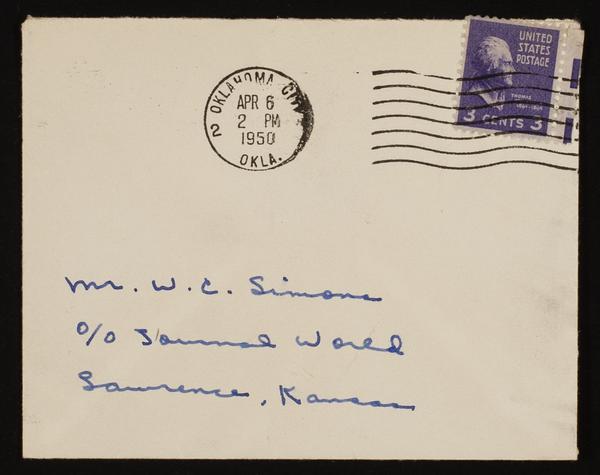 UNITED
STATES
POSTAGE
THOMAS
3 CENTS 3
OKLAHOMA CITY
APR 6
2 PM
1950
2
OKLA.
Mr. W. C. Simons
c/o Journal World
Lawrence, Kansas